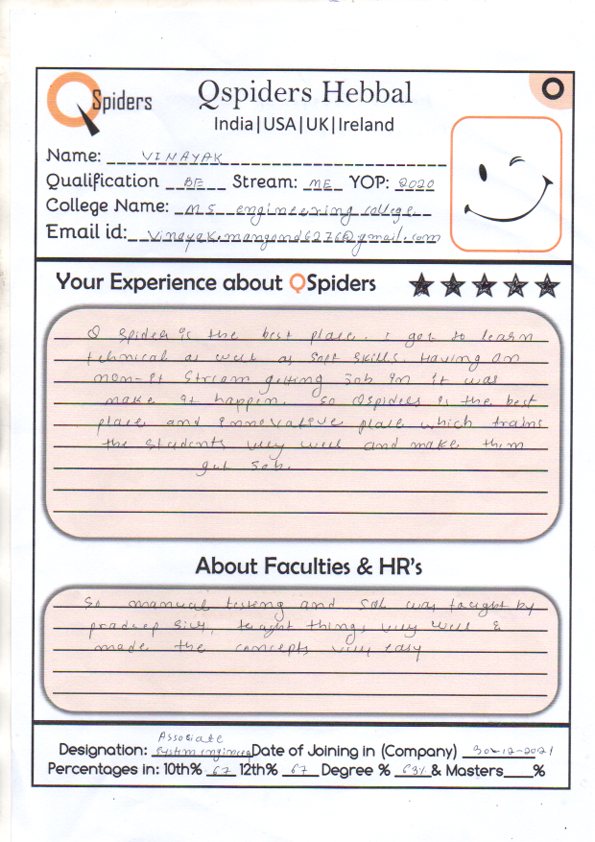 QSpiders
Qspiders Hebbal
India|USA|UK|Ireland
Name: VINAYAK
Qualification BE Stream: ME YOP: 2020
College Name: MS engineering college
Email id: vinayak.mangond6276@gmail.com
Your Experience about QSpiders
Q spider is the best place. I got to learn
tehnical as well as soft skills. Having an
non-it stream getting Job in it was
make it happen. So Qspiders is the best
place and innovative place which trains
the students very well and make them
get Job.
About Faculties & HR's
So manual testing and SQL was taught by
pradeep sir, taught things very well &
made the concepts very easy
Associate
Designation: System engineer Date of Joining in (Company) 30-12-2021
Percentages in: 10th% 67 12th% 67 Degree % 63% & Masters %